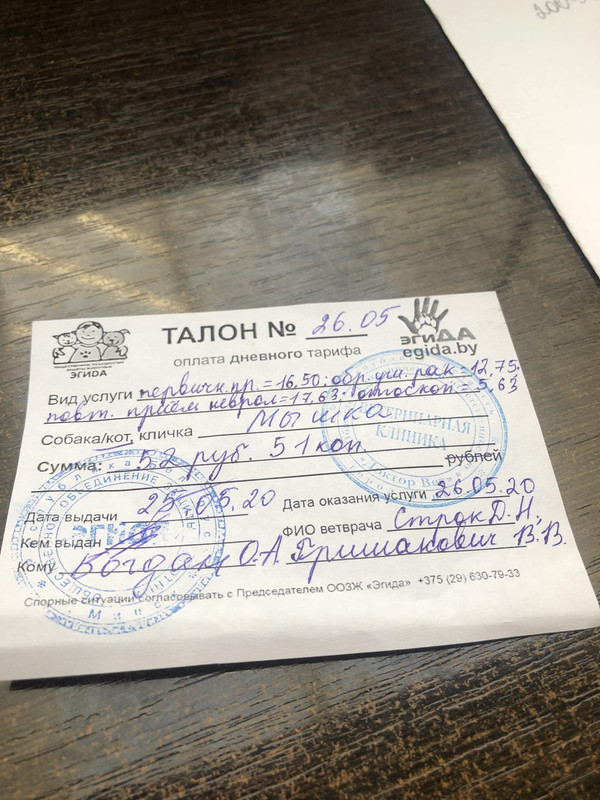 200
ЭГИДА
ТАЛОН № 26.05
эгиДА
egida.by
оплата дневного тарифа
Вид услуги первичн.пр.=16,50; обр. уш. рак.=12,75.
повт. приём неврол=17,63; отоскоп=5,63
Собака/кот, кличка Мышка
Сумма: 52 руб. 51 коп рублей
ВЕТЕРИНАРНАЯ
КЛИНИКА
Дата выдачи 25.05.20 Дата оказания услуги 26.05.20
Кем выдан ФИО ветврача Строк Д.Н.,
Кому Выдан О.А Гришакович В.В.
Спорные ситуации согласовывать с Председателем ООЗЖ «Эгида» +375 (29) 630-79-33
ОБЪЕДИНЕНИЕ